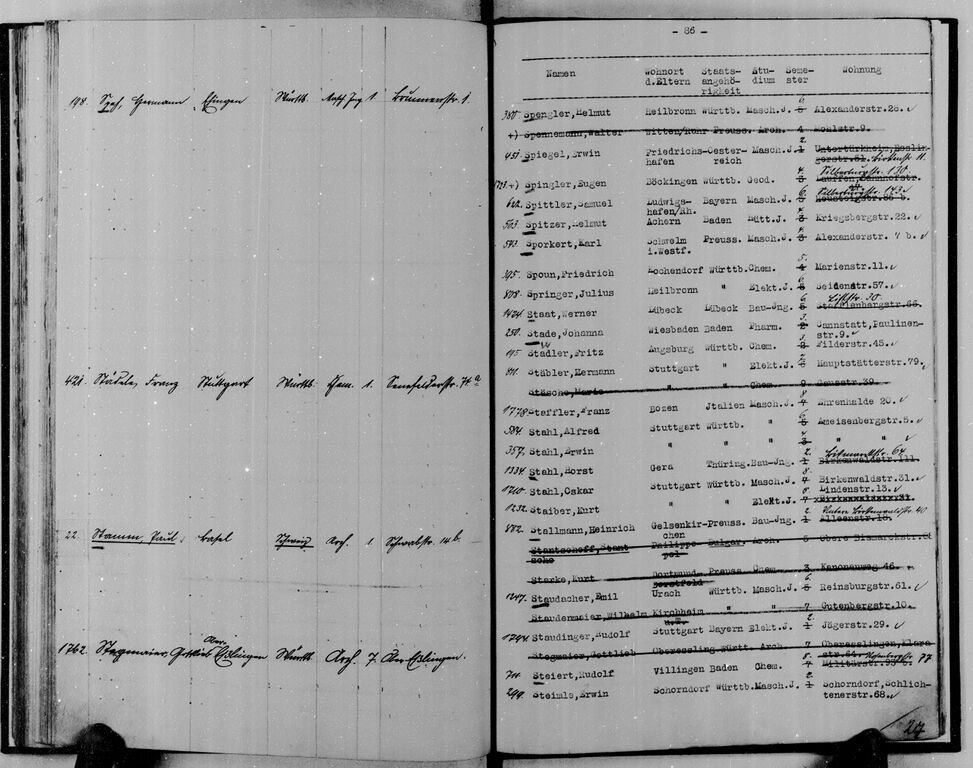 198. Hermann Württb. 1. Brunnenstr. 1
421. Franz Stuttgart Württb. Chem. 1. Senefelderstr. 74 a
22. Stamm, Paul, Basel Schweiz Arch. 1 Schwabstr. 14b.
1762. Stegmaier, Gottlieb Ober Esslingen Württb. Arch. 7.
- 86 -
Namen Wohnort d.Eltern Staats-angehö-rigkeit Stu-dium Seme-ster Wohnung
6.
380. Spengler,Helmut Heilbronn Württb. Masch.J. 5 Alexanderstr.26.
+) Spennemann,Walter Witten/Ruhr Preuss. Arch. 4 Mohlstr.9.
2.
451. Spiegel,Erwin Friedrichs- Oester- Masch.J. 1 Untertürkheim,Esslin-
hafen reich gerstr.51.
4. Silberburgstr. 130
+) Spingler,Eugen Böckingen Württb. Geod. 3 Lauffen,Bahnhofstr.
6. Silberburgstr. 143
Spittler,Samuel Ludwigs- Bayern Masch.J. 5
hafen/Rh.
4.
503 Spitzer,Helmut Achern Baden Hütt.J. 3 Kriegsbergstr.22.
4.
543 Sporkert,Karl Schwelm Preuss. Masch.J. 3 Alexanderstr. 7 b.
i.Westf.
5.
Spoun,Friedrich Kochendorf Württb. Chem. 4 Marienstr.11.
6.
808. Springer,Julius Heilbronn " Elekt.J. 5 Seidenstr.57.
6.
1424. Staat,Werner Lübeck Lübeck Bau-Jng. 5
3.
250. Stade,Johanna Wiesbaden Baden Pharm. 2 Cannstatt,Paulinen-
str.9.
195 Stadler,Fritz Augsburg Württb. Chem. 2 Filderstr.45.
811 Stäbler,Hermann Stuttgart " Elekt.J. Hauptstätterstr.79.
Stäsche,Marie " " Chem. 9 Gausstr.39.
8
1778. Staffler,Franz Bozen Jtalien Masch.J. Ehrenhalde 20.
6
584 Stahl,Alfred Stuttgart Württb. " 5 Ameisenbergstr.5.
4
357. Stahl,Erwin " " " 3 " "
2.
1334 Stahl,Horst Gera Thüring. Bau-Jng. 1 Birkenwaldstr.111.
8.
1710. Stahl,Oskar Stuttgart Württb. Masch.J. Birkenwaldstr.31.
8. Lindenstr.13.
1232. Staiber,Kurt " " Elekt.J. 7
2.
802. Stallmann,Heinrich Gelsenkir- Preuss. Bau-Jng. 1 Alleenstr.10.
chen
Stantscheff,Stant Philippo- Bulgar. Arch. 5 Obere Bismarckstr.61
sche pel
Starke,Kurt Dortmund- Preuss. Chem. 3 Kanonenweg 46.
Dorstfeld
6.
1247. Staudacher,Emil Urach Württb. Masch.J. 5 Reinsburgstr.61.
Staudenmaier,Wilhelm Kirchheim " " 7 Gutenbergstr.10.
u.T.
2.
1744. Staudinger,Rudolf Stuttgart Bayern Elekt.J. 1 Jägerstr.29.
Stegmaier,Gottlieb Oberessling. Württ. Arch. 7 Oberesslingen,Klara-
str.61.
8. 77
711. Steiert,Rudolf Villingen Baden Chem. 7
2.
299. Steimle,Erwin Schorndorf Württb. Masch.J. 1 Schorndorf,Schlich-
tenerstr.68.
27